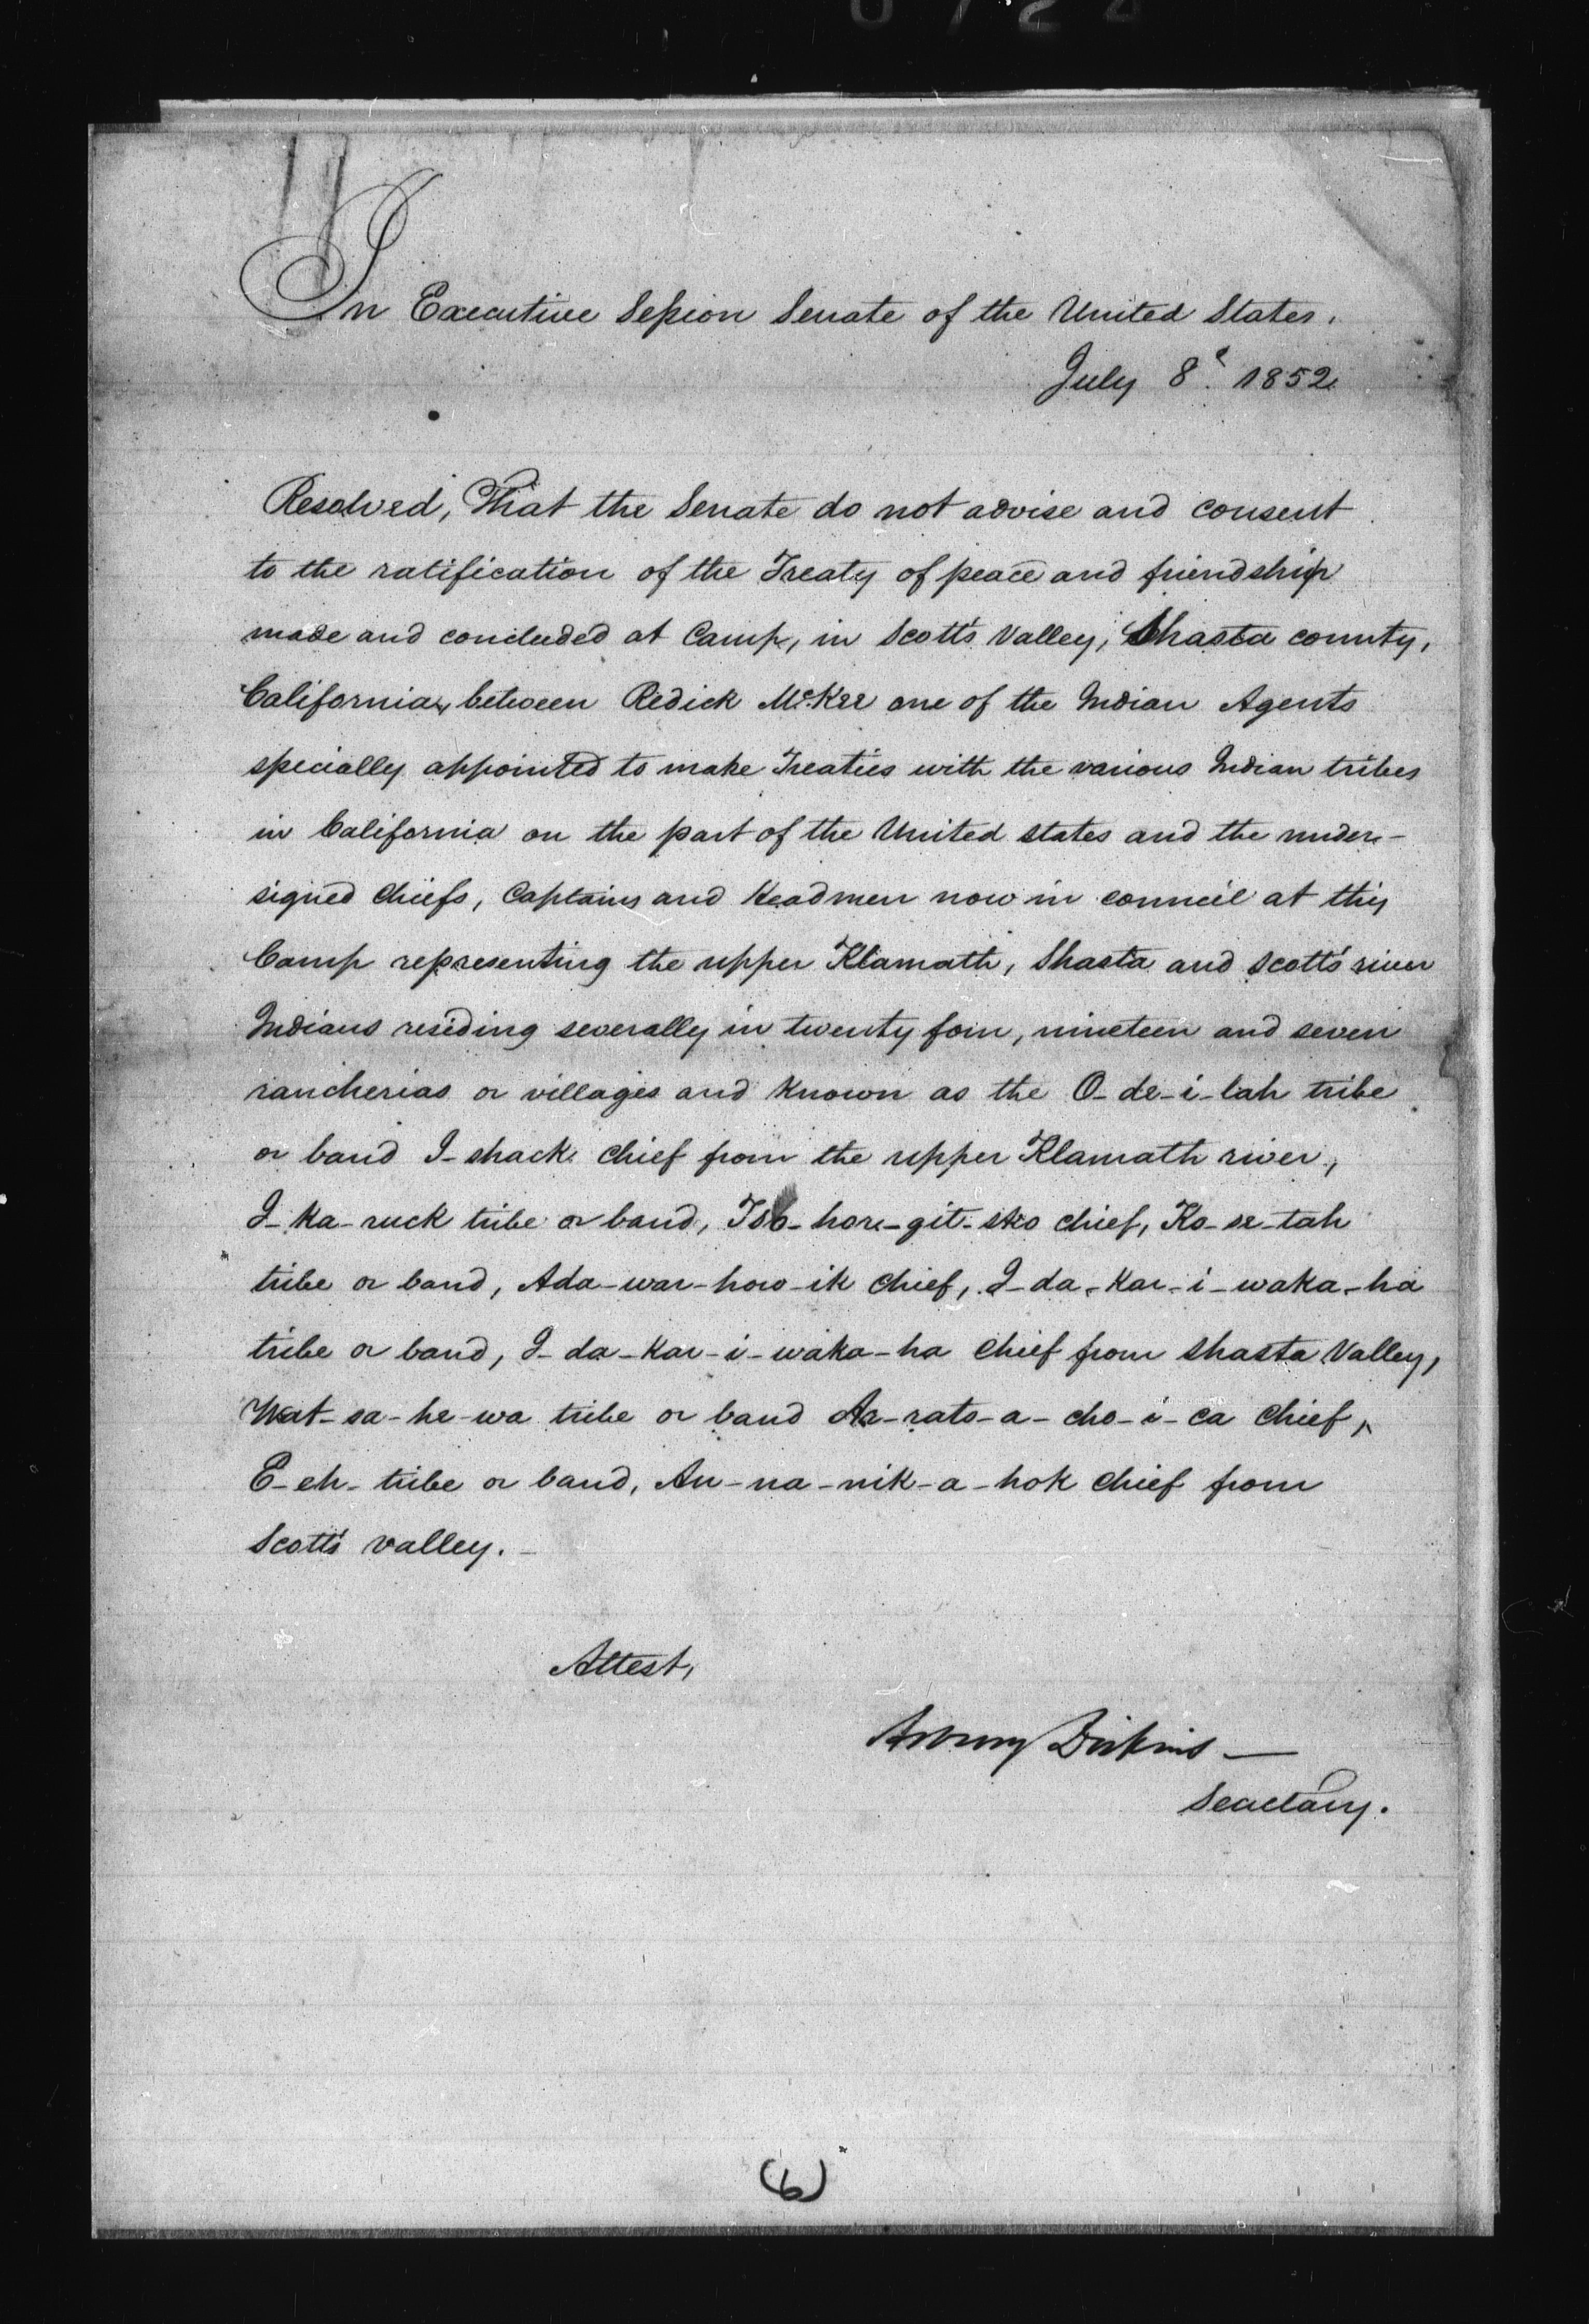 In Executive Session Senate of the United States.
July 8th 1852
Resolved, That the Senate do not advise and consent
to the ratification of the Treaty of peace and friendship
made and concluded at Camp, in Scott's Valley, Shasta county,
California, between Redick McKee one of the Indian Agents
specially appointed to make Treaties with the various Indian tribes
in California on the part of the United States and the under-
signed chiefs, Captains and Headmen now in council at this
Camp representing the upper Klamath, Shasta and Scott's river
Indians residing severally in twenty four, nineteen and seven
rancherias or villages and known as the O-de-i-lah tribe
or band I-shack chief from the upper Klamath river,
I-ka-ruck tribe or band, Tso-hor-git-sko chief, Ko-se-tah
tribe or band, Ada-war-how-ik chief, I-da-kar-i-waka-ha
tribe or band, I-da-kar-i-waka-ha chief from Shasta Valley,
Wat-sa-he-wa tribe or band Ar-rats-a-cho-i-ca chief,
E-eh-tribe or band, An-na-nik-a-hok chief from
Scott's valley.
Attest,
Asbury Dickins
Secretary.
(6)